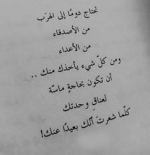 تحتاج دومًا إلى الهرب
من الأصدقاء
من الأعداء
ومن كلّ شيء يأخذك منك ..
أن تكون بحاجةٍ ماسّة
لعناق وحدتك
كلّما شعرت أنّك بعيدًا عنك!